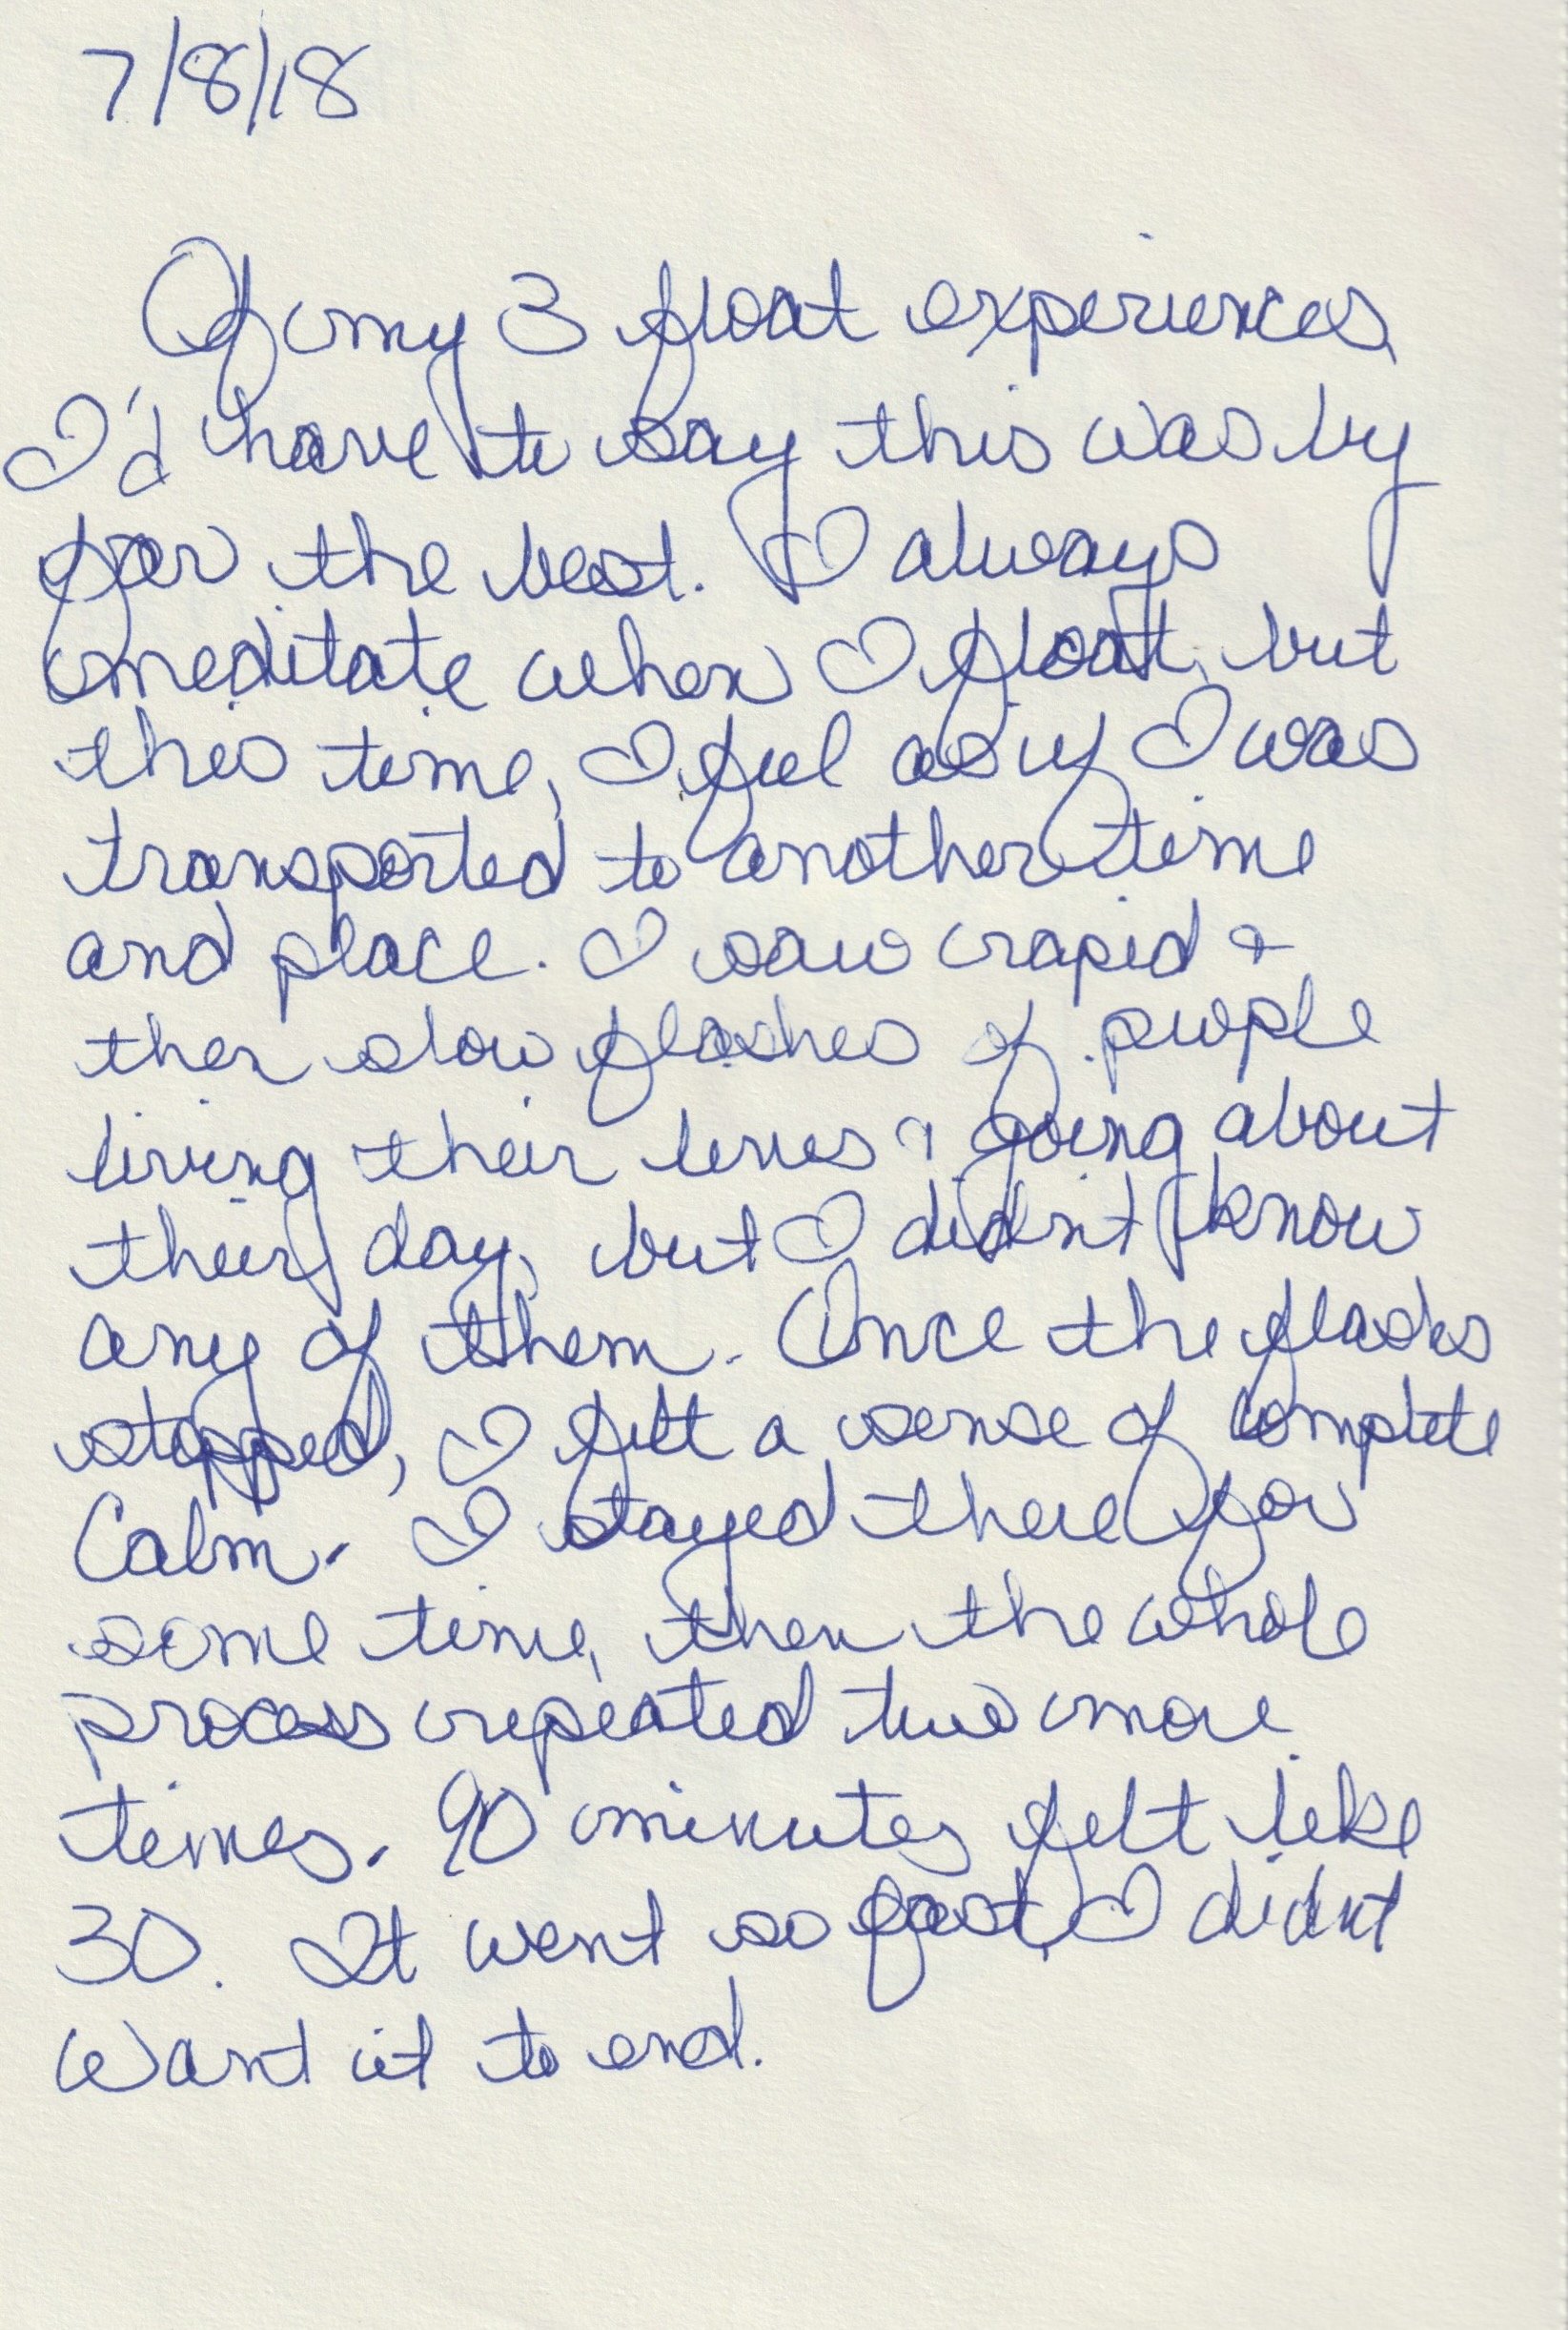 7/8/18
Of my 3 float experiences,
I'd have to say this was by
far the best. I always
meditate when I float, but
this time, I feel as if I was
transported to another time
and place. I saw rapid &
then slow flashes of people
living their lives & going about
their day, but I didn't know
any of them. Once the flashes
stopped, I felt a sense of complete
Calm. I stayed there for
some time, then the whole
process repeated two more
times. 90 minutes felt like
30. It went so fast, I didn't
want it to end.